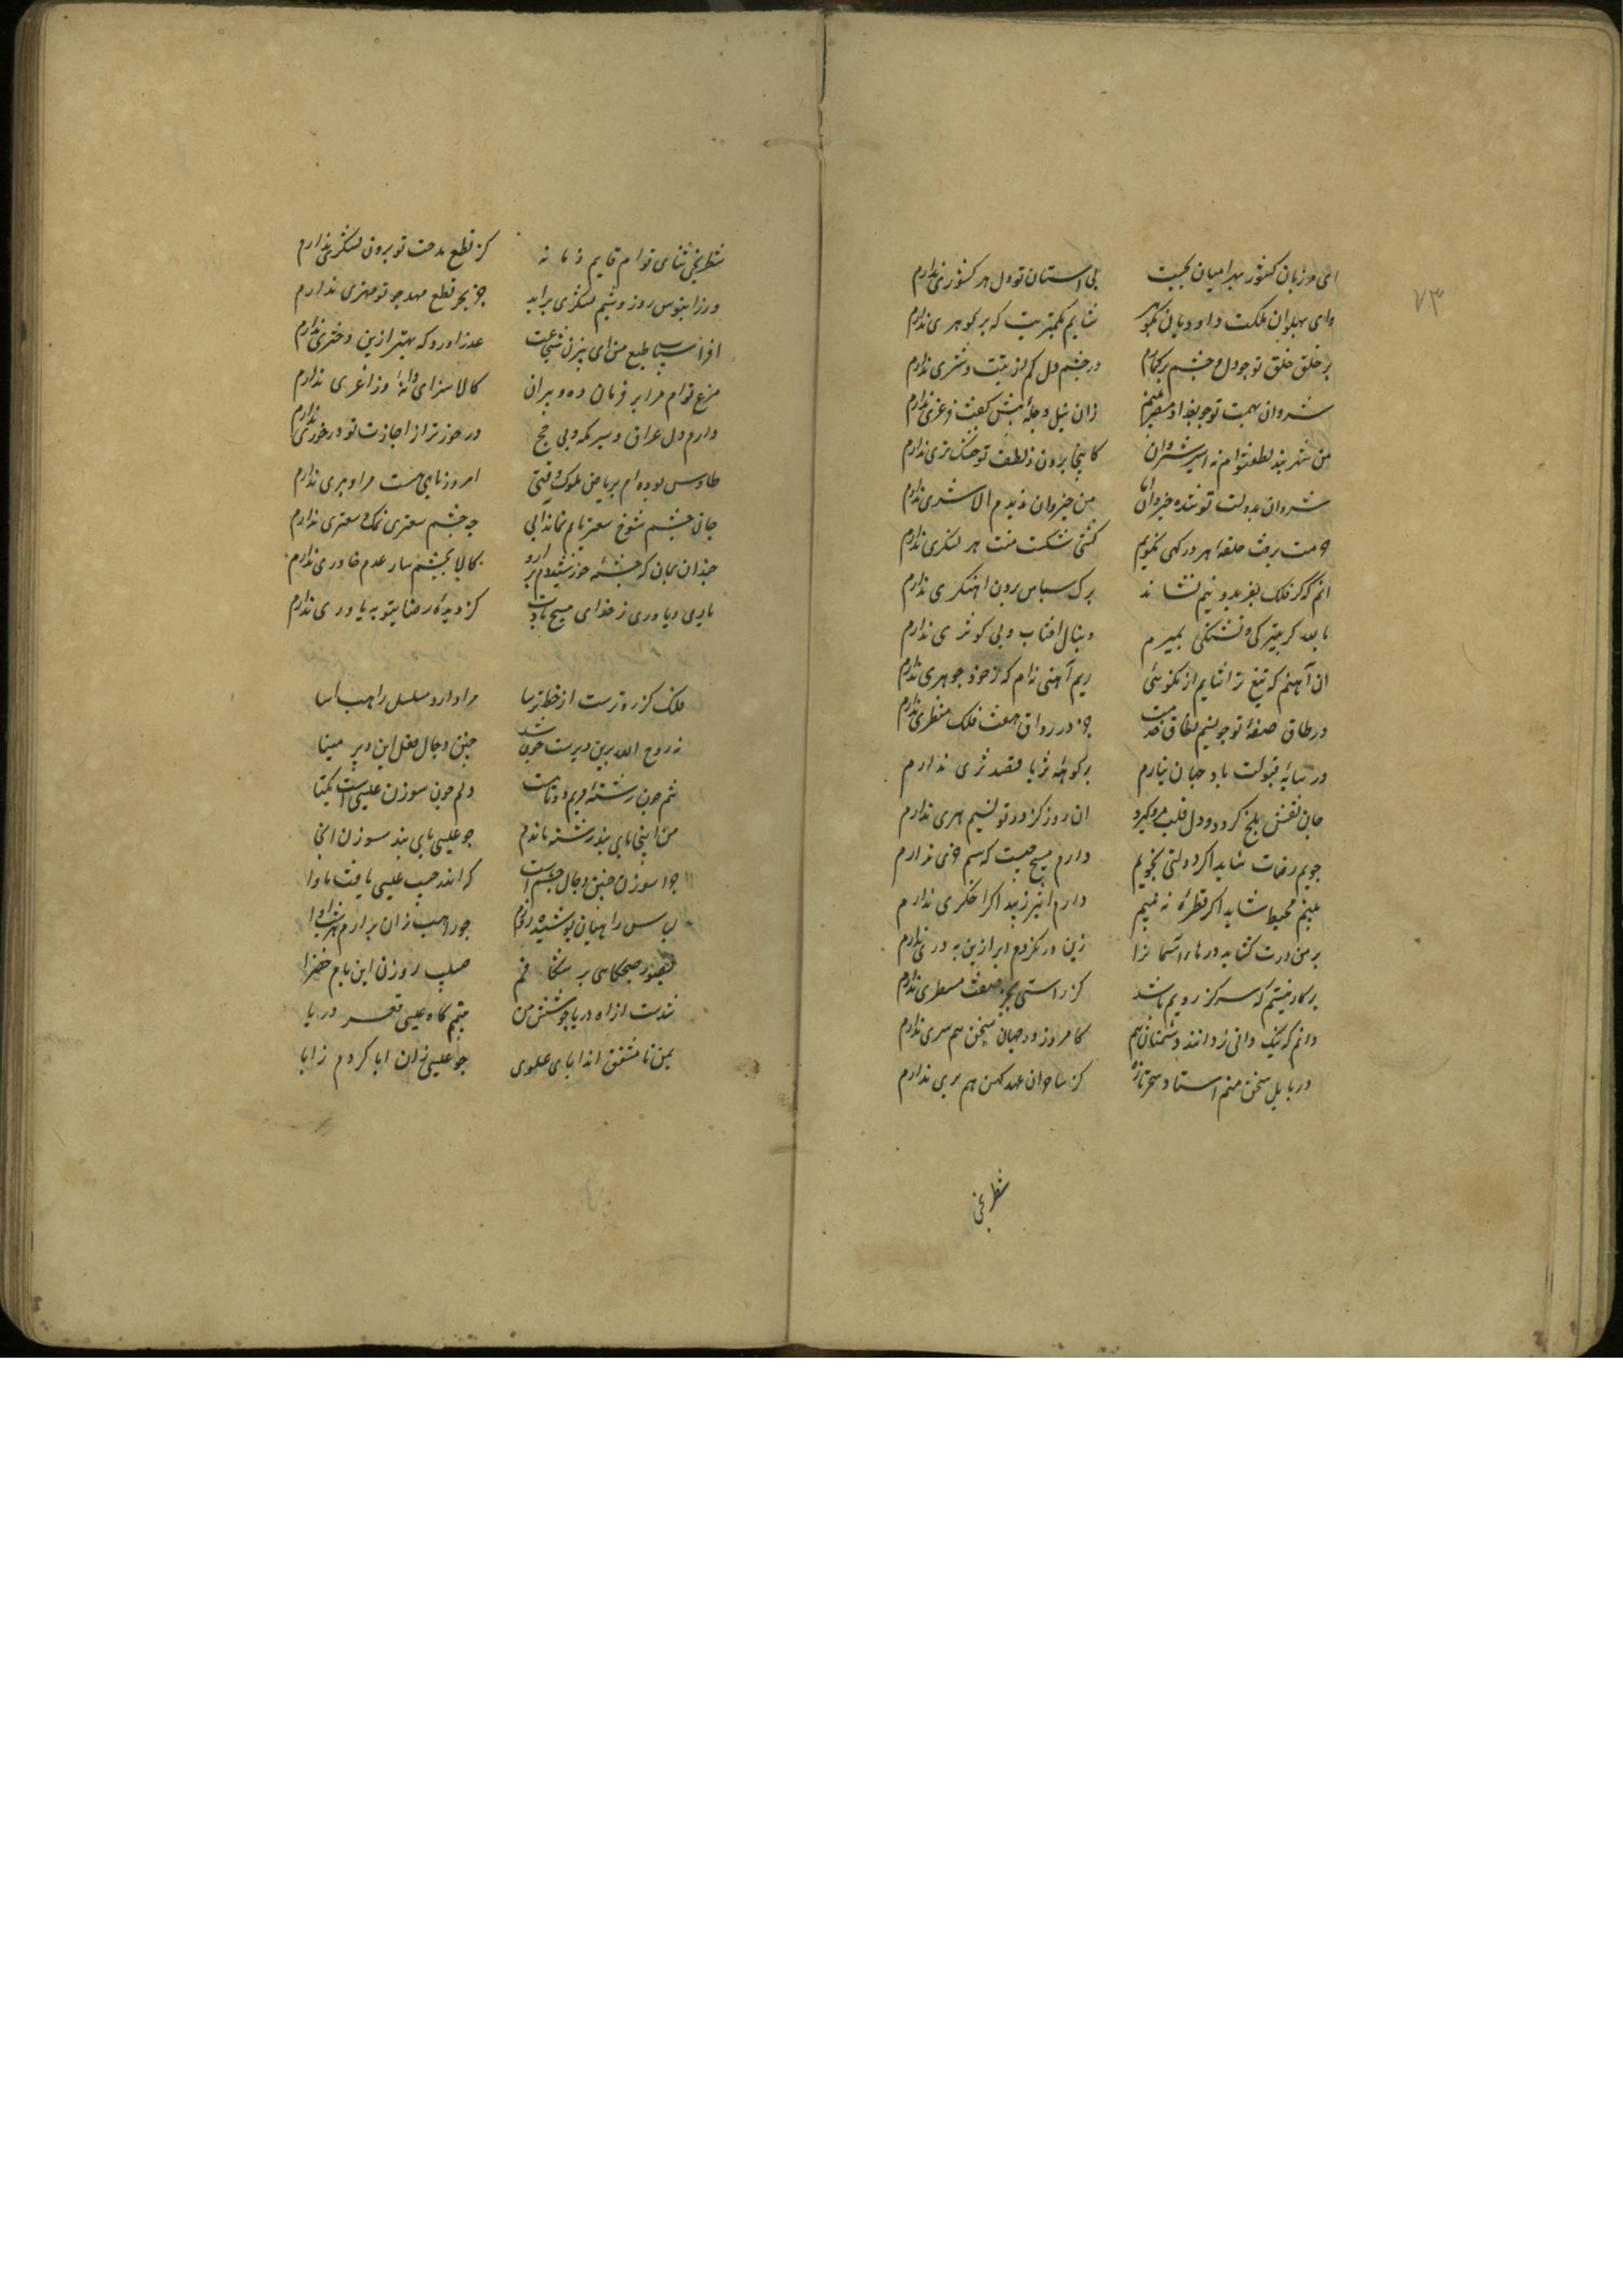 ۷۳
ای مرزبان کشور بهرامیان بحیب بی استان تو دل هر کشوری ندارم
وای پهلوان ملکت داودیان بکوهر شایم بکمتریت که برکوهری ندارم
بر خلق خلق تو جو دل و جشم برکمارم در جشم دل کم از بنت و شتری ندارم
شروان بهمت تو جو بغداد و مصر بینم زان نیل و دجلهٔ بیش کفت فرغری ندارم
من شهربند لطف توام نه اسیر شروان کاینجا برون ز لطف تو خشک و تری ندارم
شروان بدولت تو شده خیروان اما من خیروان ندیدم الا شری ندارم
حرمت برفت حلقهٔ هر درکهی نکوبم کشتی شکست منت هر لنکری ندارم
انم که کر فلک بفریدونیم نشاند برک سپاس برون اهنکری ندارم
با بعد کر بتیرکی و تشنکی بمیرم دنبال افتاب و بی کوثری ندارم
ان آهنم که تیغ ترا شایم از نکوئی ریم آهنی نه‌ام که ز خود جوهری ندارم
در طاق صفهٔ تو جو بستیم نطاق خدمت جز در رواق هفت فلک منظری ندارم
در سایهٔ قبولت باد جهان نیارم بر کوههٔ ثریا مقصد ثری ندارم
جان نقش بلخ کردد و دل قلب مرو کیرد ان روز کز در تو نسیم هری ندارم
جویم رضات شاید اکر دولتی نجویم دارم مسیح جیست که سم خری ندارم
بینم محیط شاید اکر قطرهٔ نه بینم دارم اثیر زیبد اکر اخکری ندارم
بر من درت کشاید درهاء آسمانرا زین در نکردم ایرا زین به دری ندارم
برکار نیستم که سر کژ رویم باشد کز راستی بجز صفت مسطری ندارم
دانم که نیک دانی و دانند دشمنان هم کامروز در جهان سخن همسری ندارم
در بابل سخن منم استاد سحر تازه کز ساحران عهد کهن هم بری ندارم
شطرنجی
شطرنجی ثنای توام قایم زمانه کز نطع مدحت تو برون لشکری ندارم
ورز ابنوس روز و شبم لشکری براید جز بحر نطع مهد جو تو مهتری ندارم
افراسیاب طبع من ای بیژن شجاعت عذر اورد که بهتر ازین دختری ندارم
مرغ توام مرا بر فرمان ده و بپران کالا سزای دانهٔ و زاغری ندارم
دارم دل عراق و سر مکه و پی حج درخور تر از اجازت تو درخوری ندارم
طاوس بوده‌ام بریاض ملوک وقتی امروز پای هست مرا و پری ندارم
جان جشم شوخ سعتر پایم نماند ابی جه جشم سعتری نمک و سعتری ندارم
جندان بمان که جشمهٔ خورشید دم برارد کالا بجشمه‌سار عدم خاوری ندارم
یاری و یاوری ز خدای مسیح بادت کز دیدهٔ رضا بتو به یاوری ندارم
فلک کژروترست از خط ترسا مرا دارد مسلسل راهب آسا
نه روح الله برین دیرست جون شد جنین دجال فعل این دیر مینا
تنم جون رشتهٔ مریم دوتاست دلم جون سوزن عیسی است یکتا
من اینجا پای بند رشته ماندم جو عیسی پای بند سوزن انجا
جرا سوزن جنین دجال جشم است که اندر جیب عیسی یافت ماوا
لباس راهبان پوشیده روزم جو راهب زان برارم هر شب اوا
بصور صبحکاهی بر شکافم صلیب روزن این بام خضرا
شدست از اه دریا جوشش من تیمم کاه عیسی قعر دریا
بمن نامشفق‌اند ابای علوی جو عیسی زان ابا کردم ز ابا